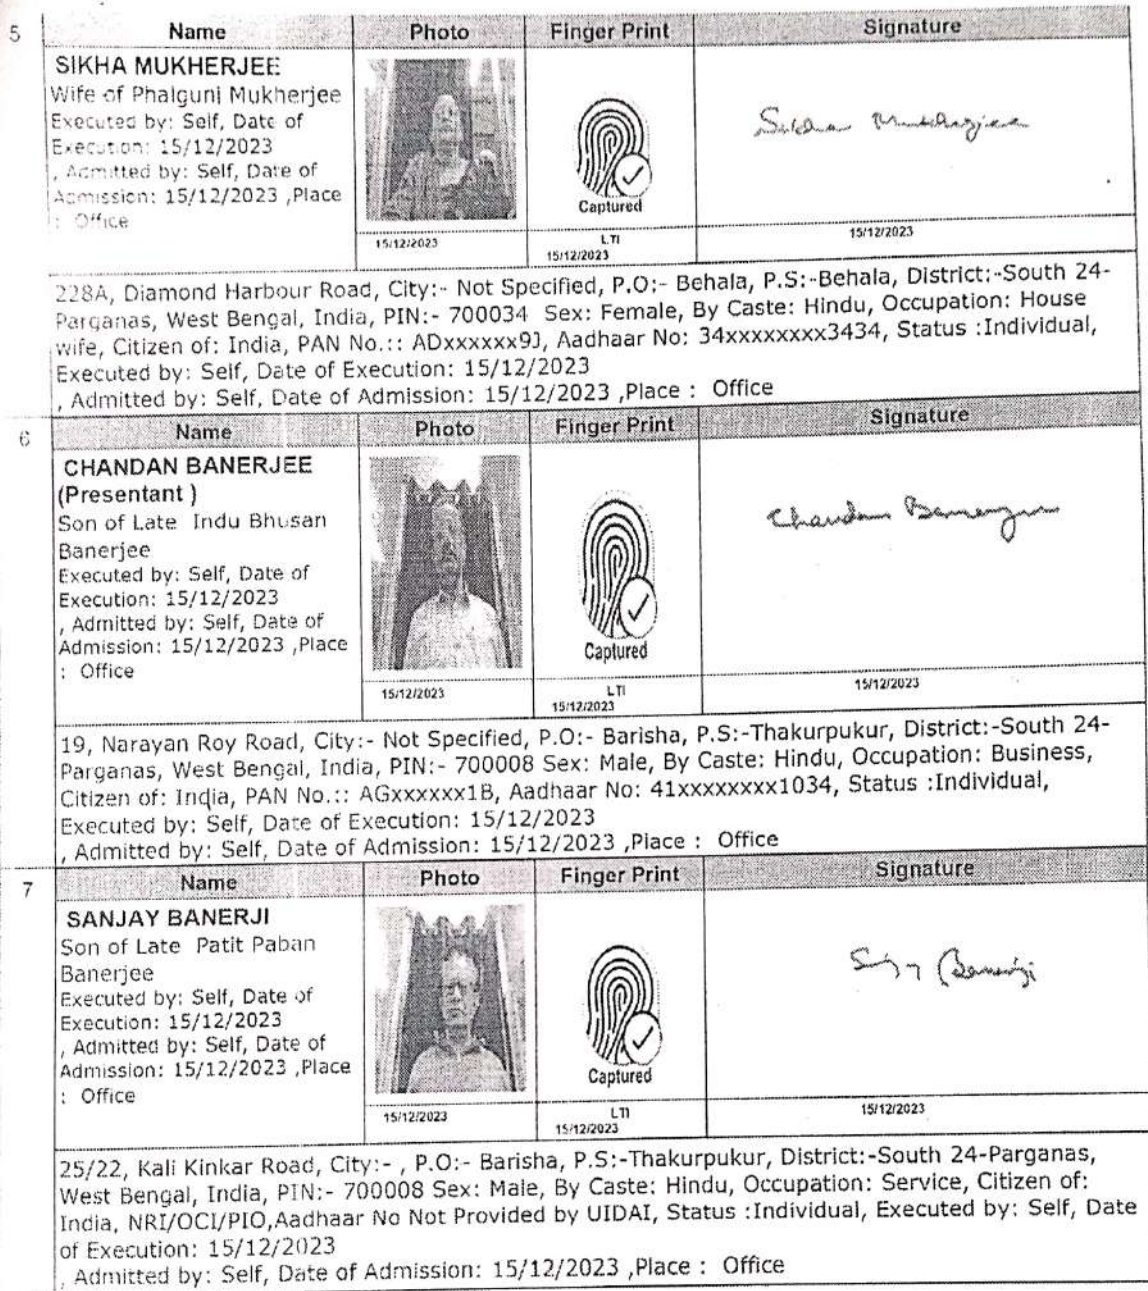 5
Name Photo Finger Print Signature
SIKHA MUKHERJEE
Wife of Phalguni Mukherjee
Executed by: Self, Date of
Execution: 15/12/2023
, Admitted by: Self, Date of
Admission: 15/12/2023 ,Place
: Office
Captured
Sikha Mukherjee
15/12/2023
LTI
15/12/2023
15/12/2023
228A, Diamond Harbour Road, City:- Not Specified, P.O:- Behala, P.S:-Behala, District:-South 24-
Parganas, West Bengal, India, PIN:- 700034 Sex: Female, By Caste: Hindu, Occupation: House
wife, Citizen of: India, PAN No.:: ADxxxxxx9J, Aadhaar No: 34xxxxxxxx3434, Status :Individual,
Executed by: Self, Date of Execution: 15/12/2023
, Admitted by: Self, Date of Admission: 15/12/2023 ,Place : Office
6
Name Photo Finger Print Signature
CHANDAN BANERJEE
(Presentant )
Son of Late Indu Bhusan
Banerjee
Executed by: Self, Date of
Execution: 15/12/2023
, Admitted by: Self, Date of
Admission: 15/12/2023 ,Place
: Office
Captured
Chandan Banerjee
15/12/2023
LTI
15/12/2023
15/12/2023
19, Narayan Roy Road, City:- Not Specified, P.O:- Barisha, P.S:-Thakurpukur, District:-South 24-
Parganas, West Bengal, India, PIN:- 700008 Sex: Male, By Caste: Hindu, Occupation: Business,
Citizen of: India, PAN No.:: AGxxxxxx1B, Aadhaar No: 41xxxxxxxx1034, Status :Individual,
Executed by: Self, Date of Execution: 15/12/2023
, Admitted by: Self, Date of Admission: 15/12/2023 ,Place : Office
7
Name Photo Finger Print Signature
SANJAY BANERJI
Son of Late Patit Paban
Banerjee
Executed by: Self, Date of
Execution: 15/12/2023
, Admitted by: Self, Date of
Admission: 15/12/2023 ,Place
: Office
Captured
Banerji
15/12/2023
LTI
15/12/2023
15/12/2023
25/22, Kali Kinkar Road, City:- , P.O:- Barisha, P.S:-Thakurpukur, District:-South 24-Parganas,
West Bengal, India, PIN:- 700008 Sex: Male, By Caste: Hindu, Occupation: Service, Citizen of:
India, NRI/OCI/PIO,Aadhaar No Not Provided by UIDAI, Status :Individual, Executed by: Self, Date
of Execution: 15/12/2023
, Admitted by: Self, Date of Admission: 15/12/2023 ,Place : Office